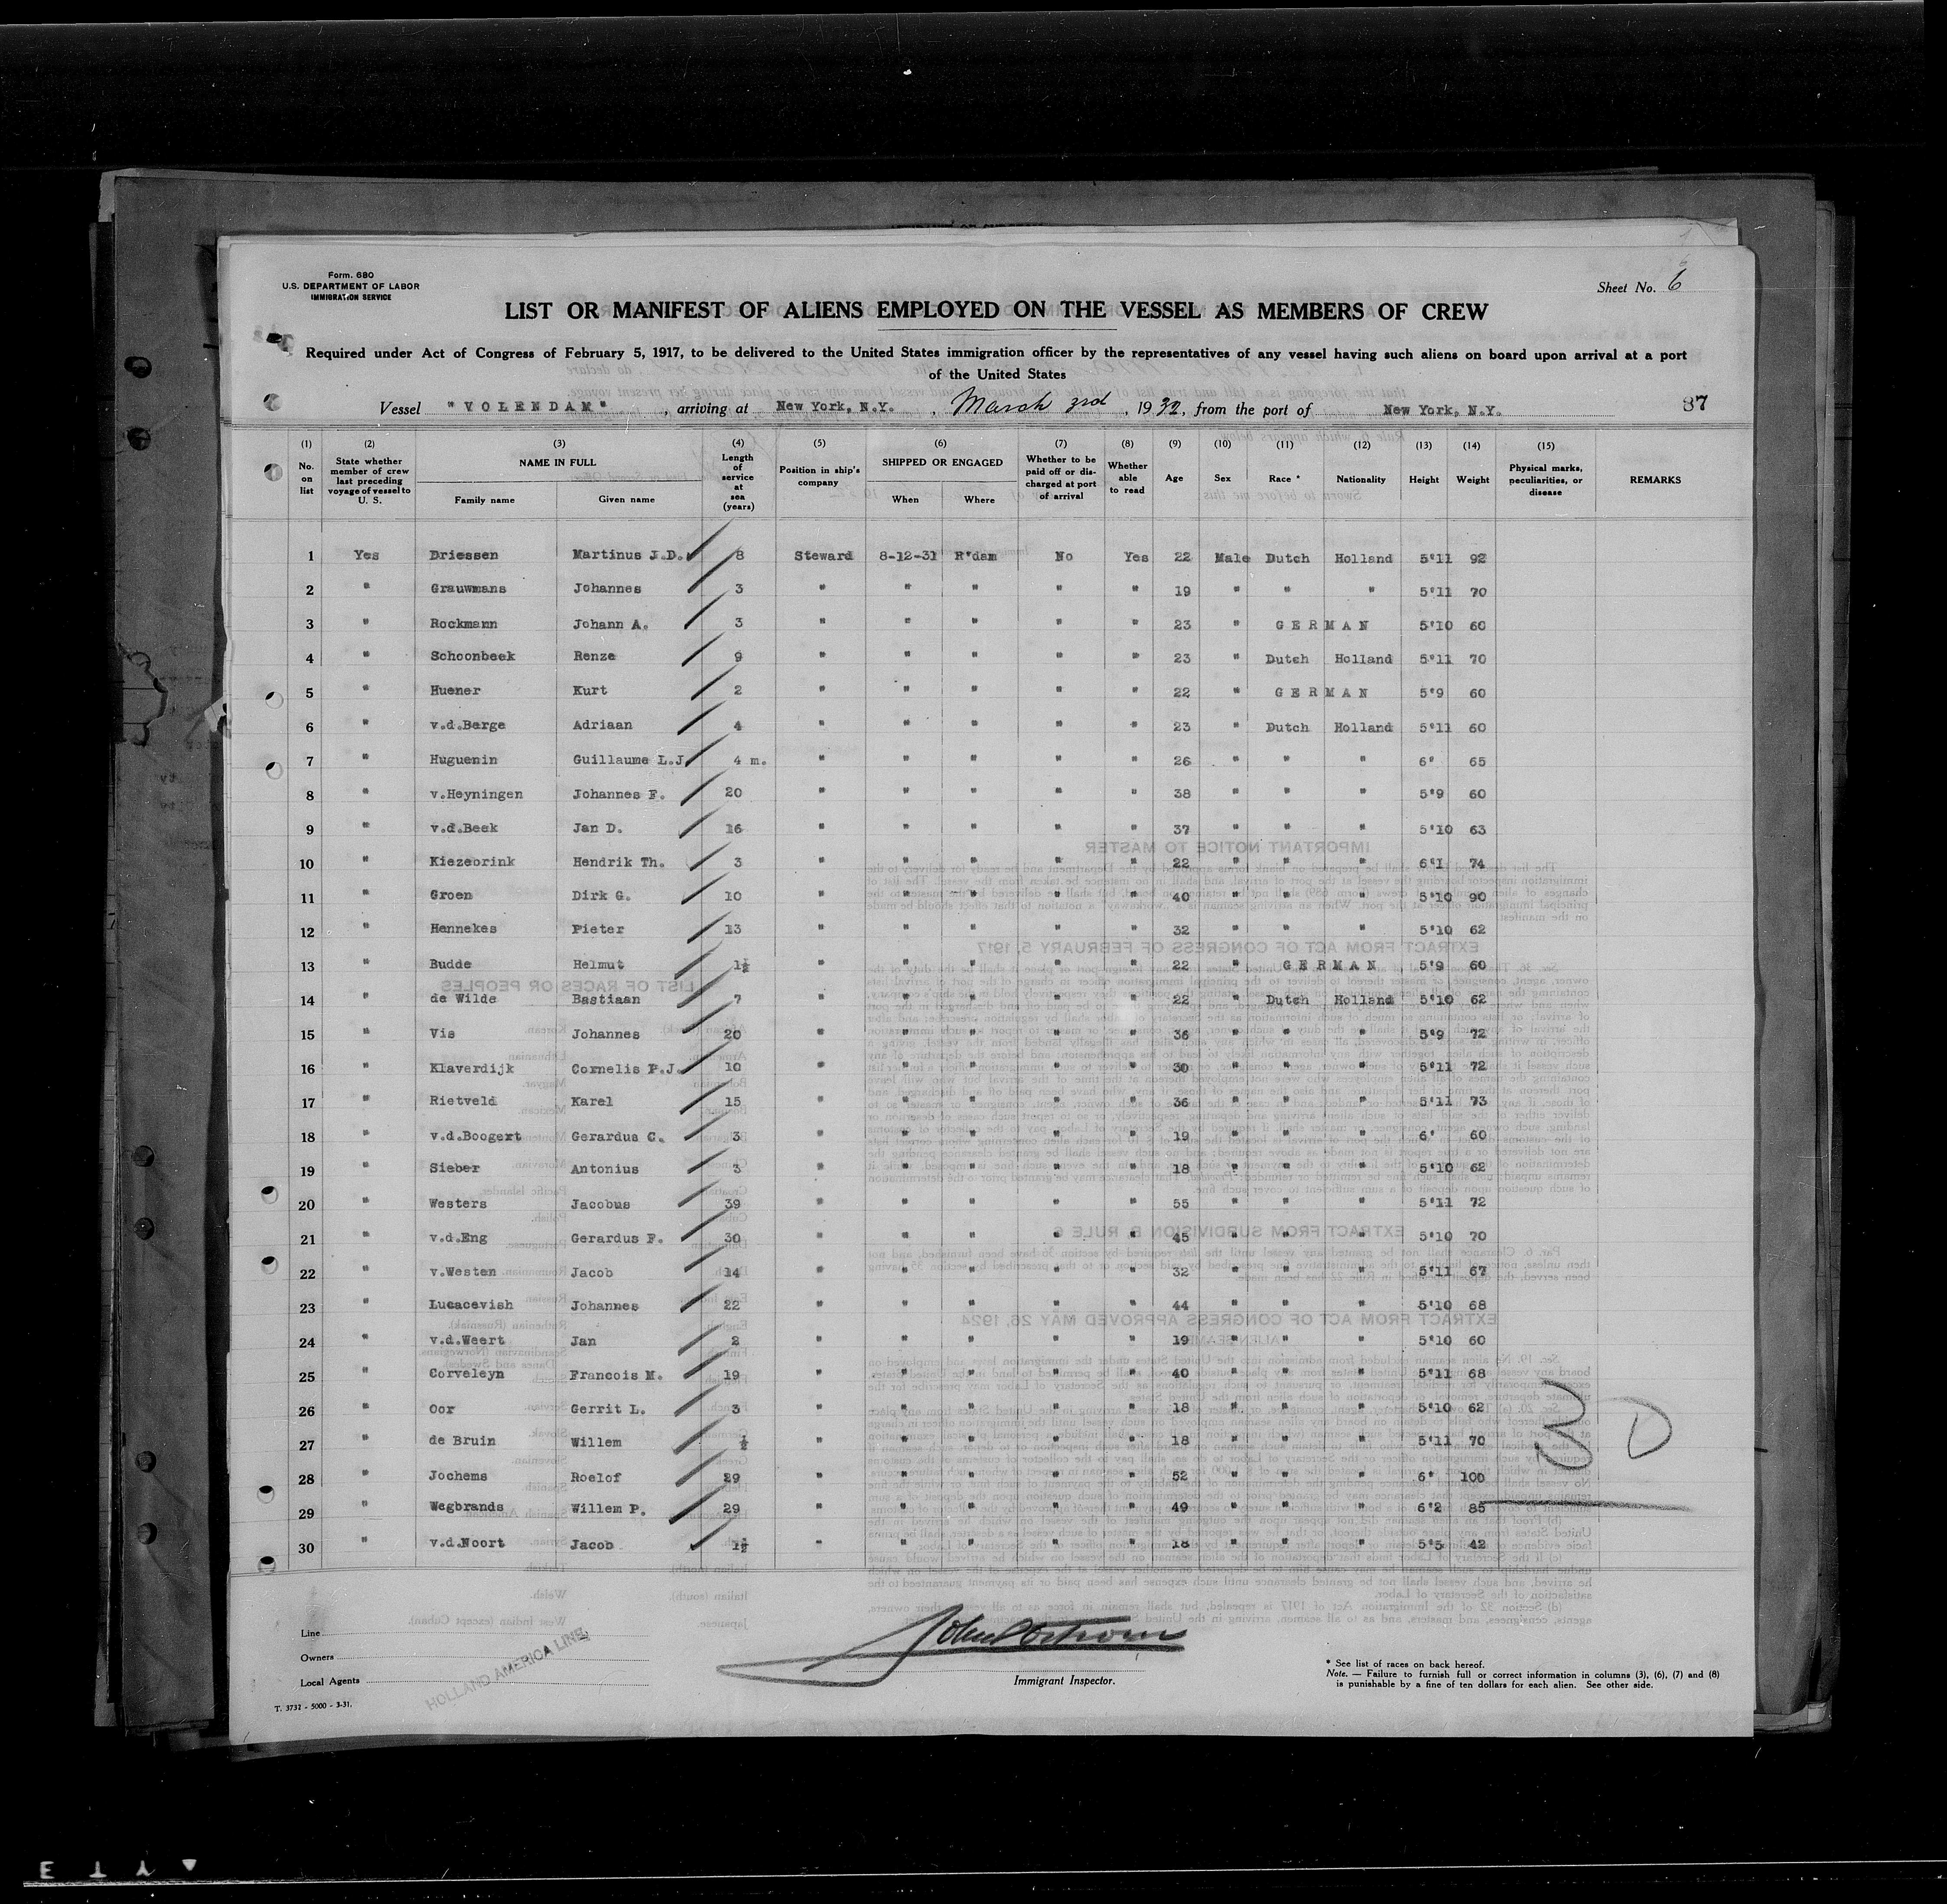 Form. 680
U.S. DEPARTMENT OF LABOR
IMMIGRATION SERVICE
Sheet No. 6
LIST OR MANIFEST OF ALIENS EMPLOYED ON THE VESSEL AS MEMBERS OF CREW
Required under Act of Congress of February 5, 1917, to be delivered to the United States immigration officer by the representatives of any vessel having such aliens on board upon arrival at a port
of the United States
Vessel "VOLENDAM", arriving at New York, N.Y., March 3rd, 1932, from the port of New York, N.Y. 87
(1) (2) (3) (4) (5) (6) (7) (8) (9) (10) (11) (12) (13) (14) (15)
No. on list | State whether member of crew last preceding voyage of vessel to U. S. | NAME IN FULL Family name Given name | Length of service at sea (years) | Position in ship's company | SHIPPED OR ENGAGED When Where | Whether to be paid off or discharged at port of arrival | Whether able to read | Age | Sex | Race * | Nationality | Height | Weight | Physical marks, peculiarities, or disease | REMARKS
1 Yes Driessen Martinus J.D. 8 Steward 8-12-31 R'dam No Yes 22 Male Dutch Holland 5'11 92
2 " Grauwmans Johannes 3 " " " " " 19 " " " 5'11 70
3 " Rockmann Johann A. 3 " " " " " 23 " GERMAN 5'10 60
4 " Schoonbeek Renze 9 " " " " " 23 " Dutch Holland 5'11 70
5 " Huener Kurt 2 " " " " " 22 " GERMAN 5'9 60
6 " v.d.Berge Adriaan 4 " " " " " 23 " Dutch Holland 5'11 60
7 " Huguenin Guillaume L.J. 4 m. " " " " " 26 " " " 6' 65
8 " v.Heyningen Johannes F. 20 " " " " " 38 " " " 5'9 60
9 " v.d.Beek Jan D. 16 " " " " " 37 " " " 5'10 63
10 " Kiezebrink Hendrik Th. 3 " " " " " 22 " " " 6'1 74
11 " Groen Dirk G. 10 " " " " " 40 " " " 5'10 90
12 " Hennekes Pieter 13 " " " " " 32 " " " 5'10 62
13 " Budde Helmut 1½ " " " " " 22 " GERMAN 5'9 60
14 " de Wilde Bastiaan 7 " " " " " 22 " Dutch Holland 5'10 62
15 " Vis Johannes 20 " " " " " 36 " " " 5'9 72
16 " Klaverdijk Cornelis P.J. 10 " " " " " 30 " " " 5'11 72
17 " Rietveld Karel 15 " " " " " 36 " " " 5'11 73
18 " v.d.Boogert Gerardus C. 3 " " " " " 19 " " " 6' 60
19 " Sieber Antonius 3 " " " " " 18 " " " 5'10 62
20 " Westers Jacobus 39 " " " " " 55 " " " 5'11 72
21 " v.d.Eng Gerardus F. 30 " " " " " 45 " " " 5'10 70
22 " v.Westen Jacob 14 " " " " " 32 " " " 5'11 67
23 " Lucacevish Johannes 22 " " " " " 44 " " " 5'10 68
24 " v.d.Weert Jan 2 " " " " " 19 " " " 5'10 60
25 " Corveleyn Francois M. 19 " " " " " 40 " " " 5'11 68
26 " Oor Gerrit L. 3 " " " " " 18 " " " 5'10 62
27 " de Bruin Willem ½ " " " " " 18 " " " 5'11 70
28 " Jochems Roelof 29 " " " " " 52 " " " 6' 100
29 " Wegbrands Willem P. 29 " " " " " 49 " " " 6'2 85
30 " v.d.Noort Jacob 1½ " " " " " 18 " " " 5'5 42
30
Line
Owners
Local Agents
HOLLAND AMERICA LINE
Immigrant Inspector.
* See list of races on back hereof.
Note. — Failure to furnish full or correct information in columns (3), (6), (7) and (8)
is punishable by a fine of ten dollars for each alien. See other side.
T. 3732 - 5000 - 3-31.